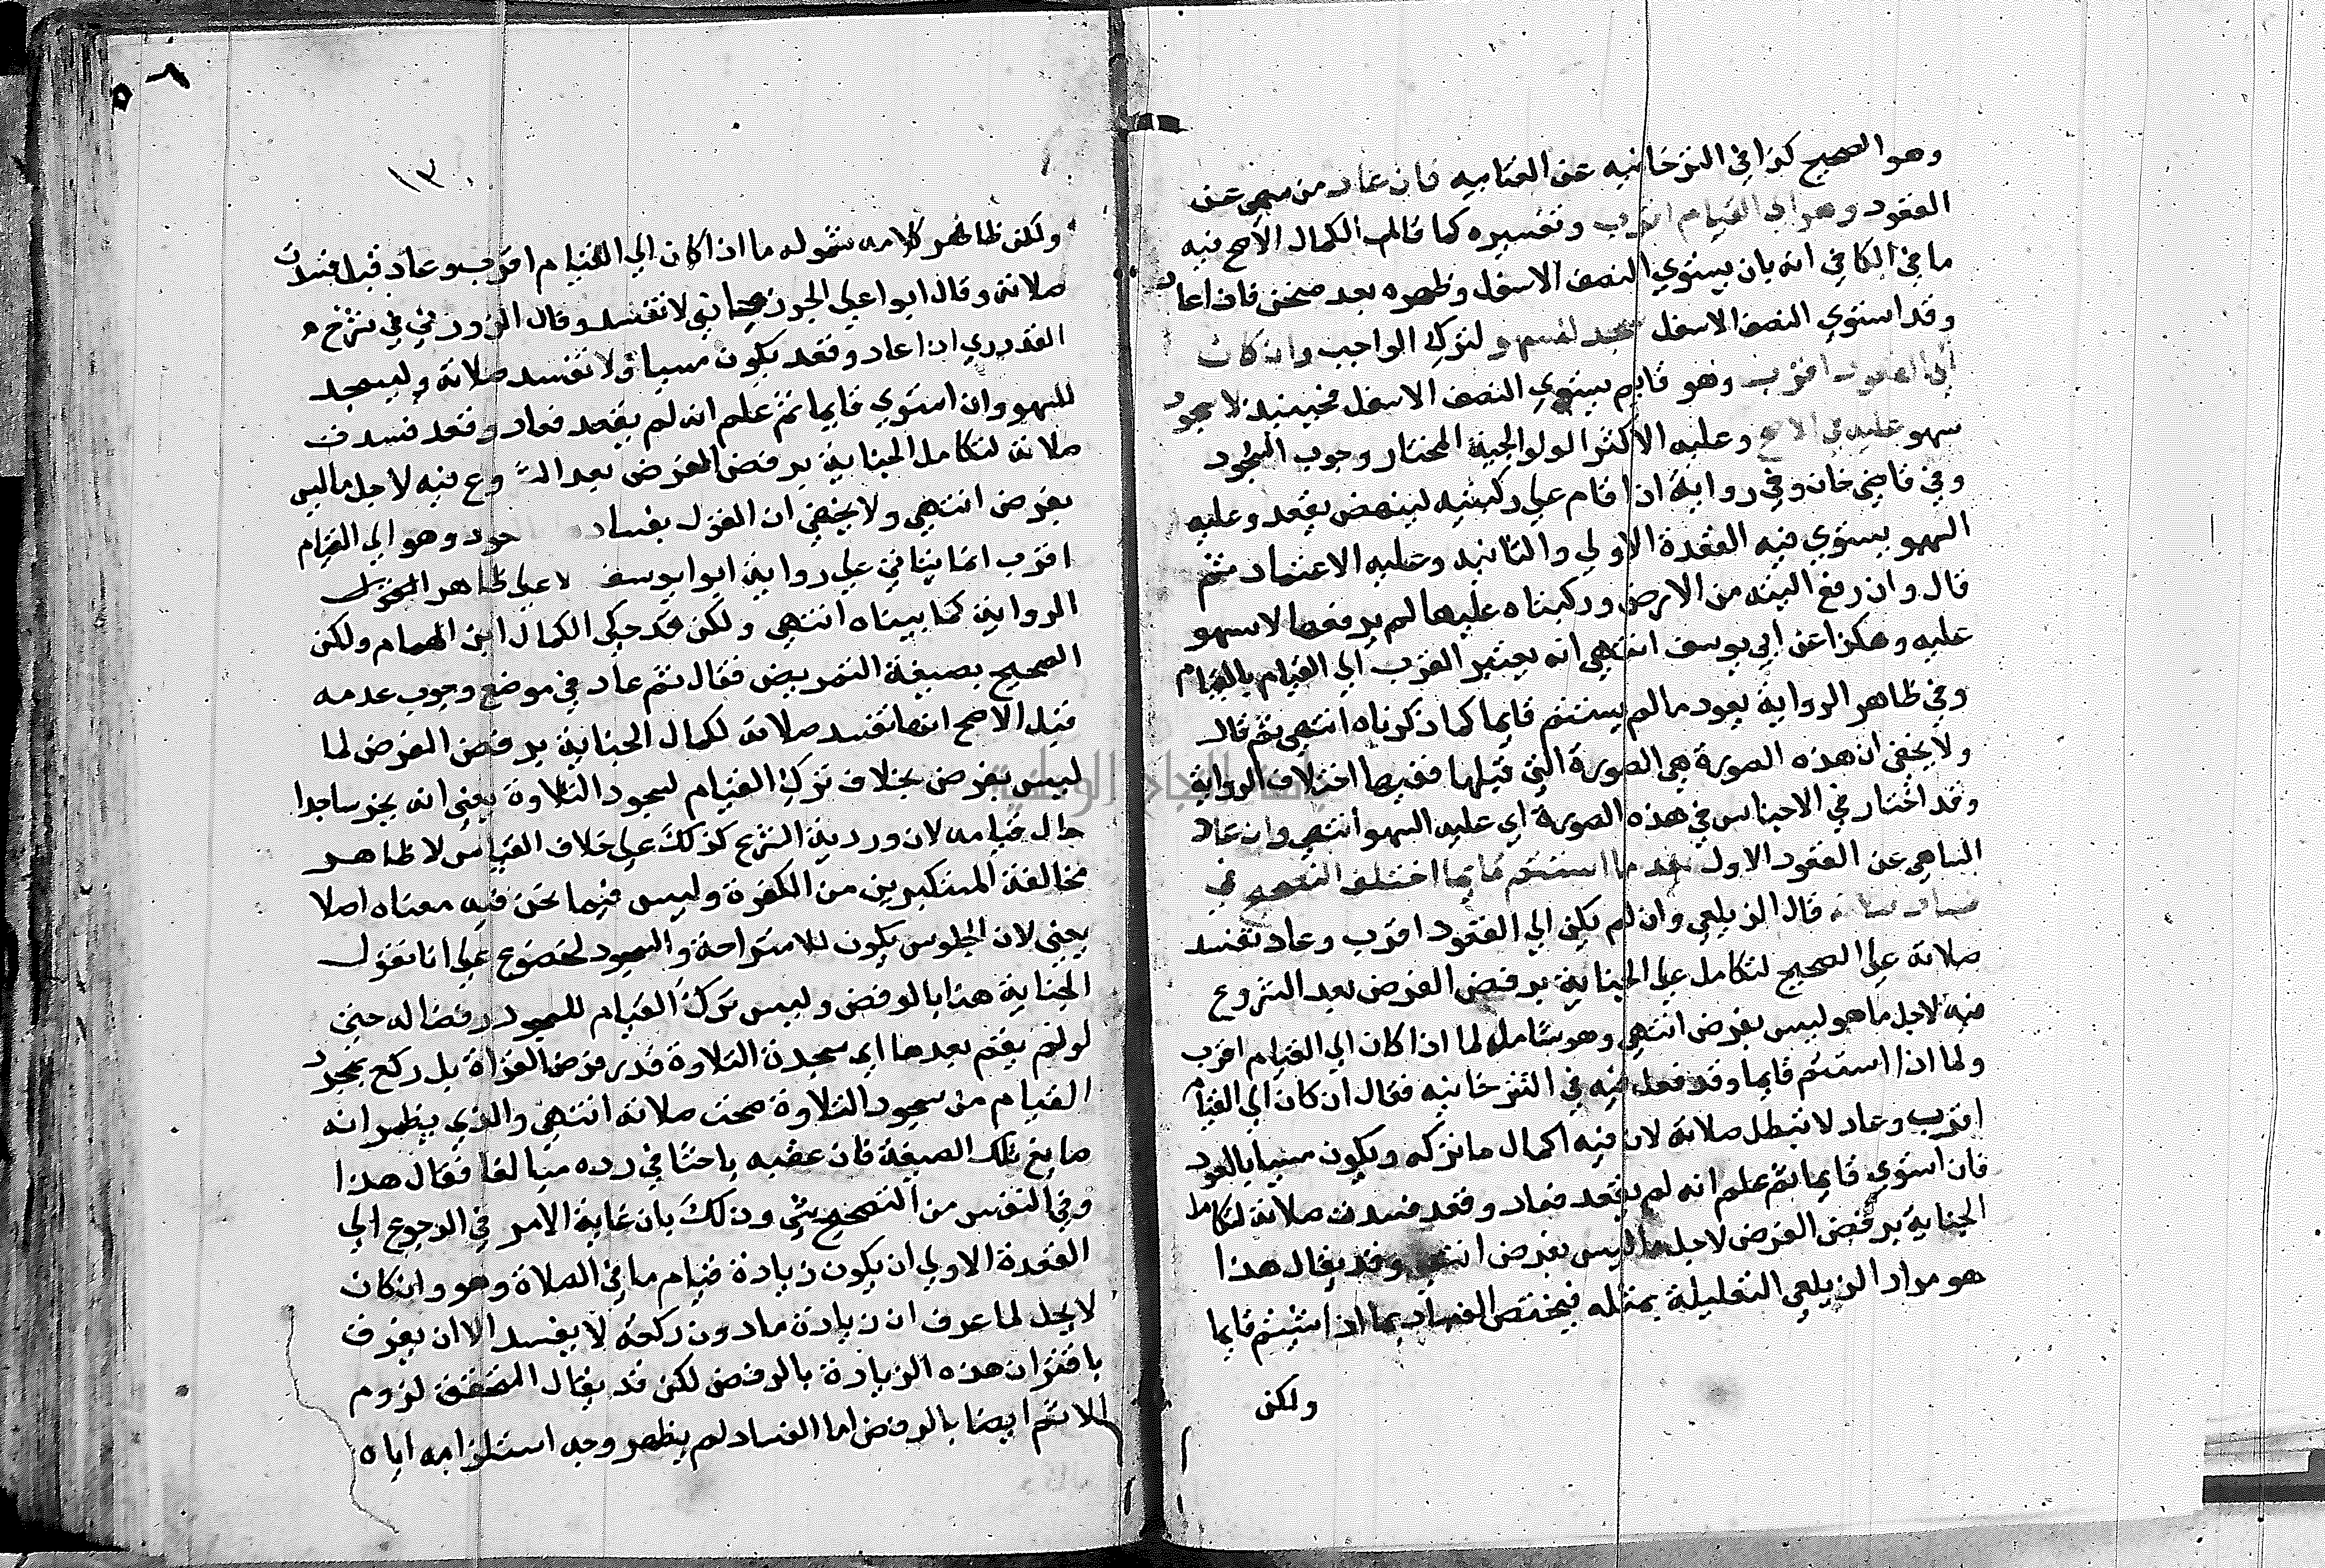 وهو الصحيح كذا في التترخانيه عن العتابيه فان عاد من سهى عن
القعود وهو الى القيام اقرب وتفسيره كما قاله الكمال الاصح فيه
ما في الكافي انه بان يستوي النصف الاسفل وظهره بعد منحن فاذا عاد
وقد استوي النصف الاسفل سجد لسهو ولترك الواجب وان كان
الى القعود اقرب وهو قايم يستوي النصف الاسفل فحينيذ لا سجود
سهو عليه في الاصح وعليه الاكثر الولوالجية المختار وجوب السجود
وفي قاضي خان وفي رواية اذا قام على ركبتيه لينهض يقعد وعليه
السهو يستوي فيه القعدة الاولي والثانيه وعليه الاعتماد ثم
قال وان رفع اليته من الارض وركبتاه عليها لم يرفعها لا سهو
عليه وهكذا عن ابي يوسف انتهي انه يعتبر القرب الي القيام بالقيام
وفي ظاهر الرواية يعود ما لم يستتم قايما كما ذكرناه انتهى ثم قال
ولا يخفى ان هذه الصورة هي الصورة التي قبلها ففيها اختلاف الرواية
وقد اختار في الاجناس في هذه الصورة اي عليه السهو انتهي وان عاد
الساهي عن القعود الاول بعد ما استتم قايما اختلف التصحيح في
فساد صلاته قال الزيلعي وان لم يكن الي القعود اقرب وعاد تفسد
صلاته على الصحيح لتكامل على الجناية برفض الفرض بعد الشروع
فيه لاجل ما هو ليس بفرض انتهي وهو شامل لما اذا كان الي القيام اقرب
ولما اذا استتم قايما وقد فصل فيه في التترخانيه فقال ان كان الي القيام
اقرب وعاد لا تبطل صلاته لان فيه اكمال ما تركه ويكون مسيا بالعود
فان استوي قايما ثم علم انه لم يقعد فعاد وقعد فسدت صلاته لتكامل
الجناية برفض الفرض لاجل ما ليس بفرض انتهي وقد يقال هذا
هو مراد الزيلعي التعليلة بمثله فيختص الفساد بما اذا استتم قايما
ولكن
١٣
ولكن ظاهر كلامه شموله ما اذا كان الي القيام اقرب وعاد قبل فسدت
صلاته وقال ابوا علي الجوزجاني لا تفسد وقال الزوزني في شرح
القدوري اذا عاد وقعد يكون مسيا ولا تفسد صلاته وليسجد
للسهو وان استوي قايما ثم علم انه لم يقعد فعاد وقعد فسدت
صلاته لتكامل الجناية برفض الفرض بعد الشروع فيه لاجل ما ليس
بفرض انتهي ولا يخفي ان القول بفساد العود وهو الي القيام
اقرب انما يتاتي على رواية ابوا يوسف لا على ظاهر
الرواية كما بيناه انتهي ولكن قد حكي الكمال ابن الهمام ولكن
الصحيح بصيغة التمريض فقال ثم عاد في موضع وجوب عدمه
قيل الاصح انها تفسد صلاته لكمال الجناية برفض الفرض لما
ليس بفرض بخلاف ترك القيام لسجود التلاوة يعني انه يخر ساجدا
حال قيامه لان ورد به الشرع كذلك على خلاف القياس لاظهار
مخالفة المستكبرين من الكفرة وليس فيما نحن فيه معناه اصلا
يعني لان الجلوس يكون للاستراحة والسجود لخضوع على انا نقول
الجناية هنا بالرفض وليس ترك القيام للسجود رفضا له حتي
لو لم يقم بعدها اي سجدة التلاوة قدر فرض القراة بل ركع بمجرد
القيام من سجود التلاوة صحت صلاته انتهي والذي يظهر انه
صايغ تلك الصيغة فان عقبه باحثا في رده مبالغا فقال هذا
وفي النفس من التصحيح شي وذلك بان غاية الامر في الرجوع الي
القعدة الاولي ان يكون زيادة قيام ما في الصلاة وهو وان كان
لا يحل لما عرف ان زيادة ما دون ركعة لا يفسد الا ان يعرف
باقتران هذه الزيادة بالرفض لكن قد يقال المتحقق لزوم
الاثم ايضا بالرفض اما الفساد لم يظهر وجه استلزامه اياه